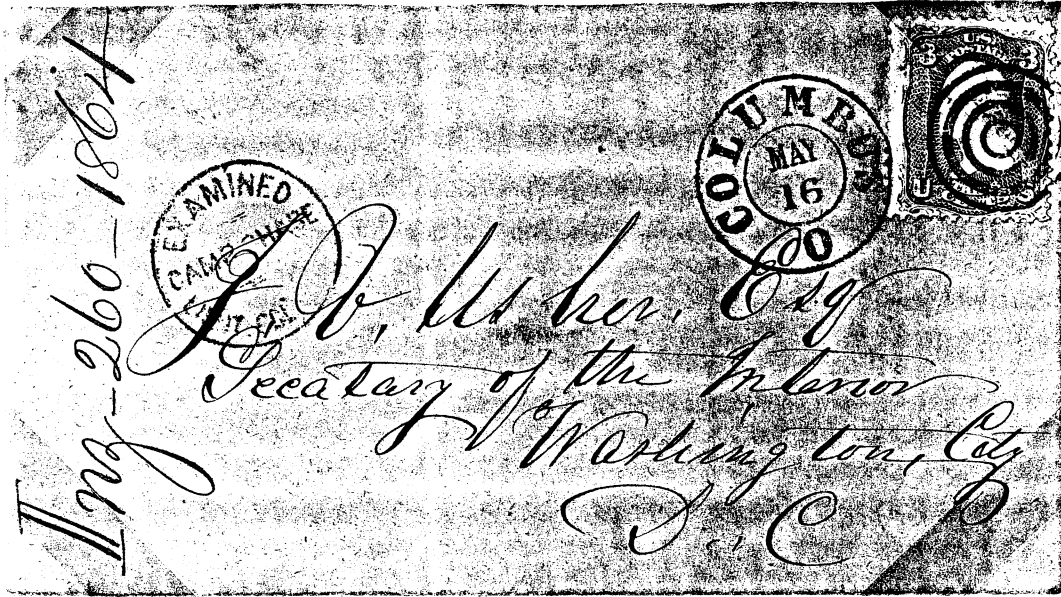 Ing-260-1864
EXAMINED
CAMP CHASE
COLUMBUS
MAY
16
O
3 3
U
J. P. Usher, Esq
Secatary of the Interior
Washington, City
D. C.